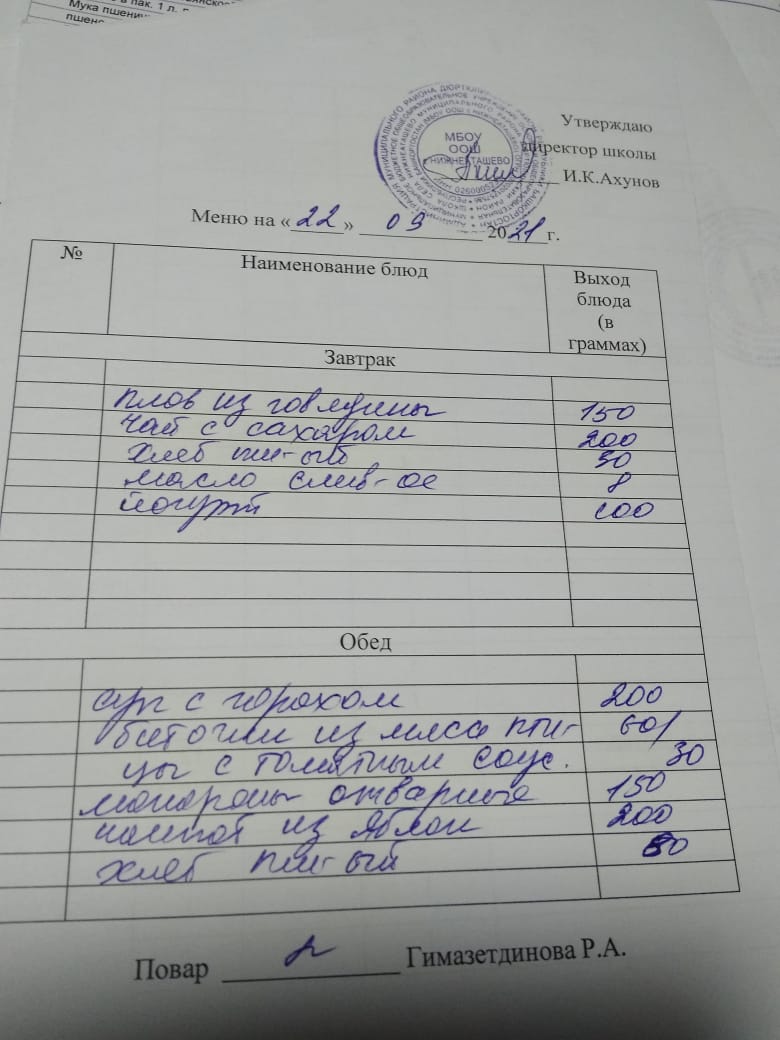 в пак. 1 л.
Мука пшенич
пшено
Утверждаю
МБОУ
ООШ
С НИЖНЕАТАШЕВО
директор школы
И.К.Ахунов
Меню на «22» 09 2021 г.
№ Наименование блюд Выход
блюда
(в
граммах)
Завтрак
плов из говядины 150
чай с сахаром 200
хлеб пш-ый 30
масло слив-ое 8
йогурт 100
Обед
суп с горохом 200
биточки из мяса пти- 60/
цы с томатным соус. 30
макароны отварные 150
компот из яблок 200
хлеб пш-ый 50
Повар Гимазетдинова Р.А.